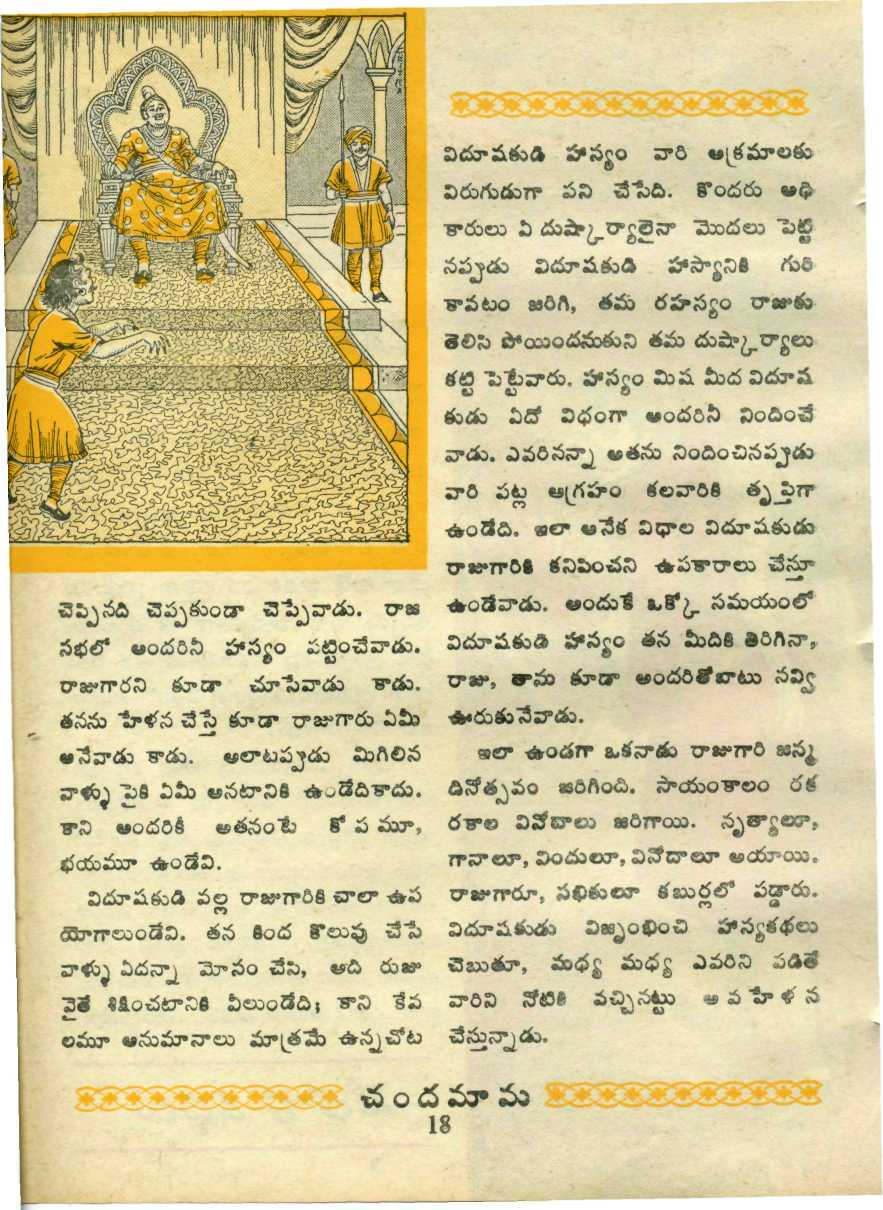 చెప్పినది చెప్పకుండా చెప్పేవాడు. రాజ
సభలో అందరినీ హాస్యం పట్టించేవాడు.
రాజుగారని కూడా చూసేవాడు కాడు.
తనను హేళన చేస్తే కూడా రాజుగారు ఏమీ
అనేవాడు కాడు. అలాటప్పుడు మిగిలిన
వాళ్ళు పైకి ఏమీ అనటానికి ఉండేదికాదు.
కాని అందరికీ అతనంటే కోపమూ,
భయమూ ఉండేవి.
విదూషకుడి వల్ల రాజుగారికి చాలా ఉప
యోగాలుండేవి. తన కింద కొలువు చేసే
వాళ్ళు ఏదన్నా మోసం చేసి, అది రుజు
వైతే శిక్షించటానికి వీలుండేది; కాని కేవ
లమూ అనుమానాలు మాత్రమే ఉన్నచోట
విదూషకుడి హాస్యం వారి అక్రమాలకు
విరుగుడుగా పని చేసేది. కొందరు అధి
కారులు ఏ దుష్కార్యాలైనా మొదలు పెట్టి
నప్పుడు విదూషకుడి హాస్యానికి గురి
కావటం జరిగి, తమ రహస్యం రాజుకు
తెలిసి పోయిందనుకుని తమ దుష్కార్యాలు
కట్టి పెట్టేవారు. హాస్యం మిష మీద విదూష
కుడు ఏదో విధంగా అందరినీ నిందించే
వాడు. ఎవరినన్నా అతను నిందించినప్పుడు
వారి పట్ల ఆగ్రహం కలవారికి తృప్తిగా
ఉండేది. ఇలా అనేక విధాల విదూషకుడు
రాజుగారికి కనిపించని ఉపకారాలు చేస్తూ
ఉండేవాడు. అందుకే ఒక్కో సమయంలో
విదూషకుడి హాస్యం తన మీదికి తిరిగినా,
రాజు, తాను కూడా అందరితోబాటు నవ్వి
ఊరుకునేవాడు.
ఇలా ఉండగా ఒకనాడు రాజుగారి జన్మ
దినోత్సవం జరిగింది. సాయంకాలం రక
రకాల వినోదాలు జరిగాయి. నృత్యాలూ,
గానాలూ, విందులూ, వినోదాలూ అయాయి.
రాజుగారూ, సఖికులూ కబుర్లలో పడ్డారు.
విదూషకుడు విజృంభించి హాస్యకథలు
చెబుతూ, మధ్య మధ్య ఎవరిని పడితే
వారిని నోటికి వచ్చినట్టు అవహేళన
చేస్తున్నాడు.
చందమామ
18